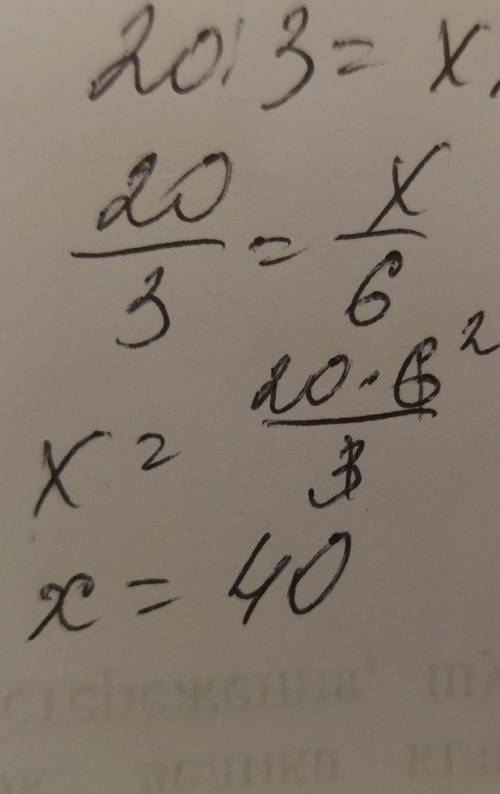 20:3=x
20/3 = x/6
x = 20·6²/3
x = 40